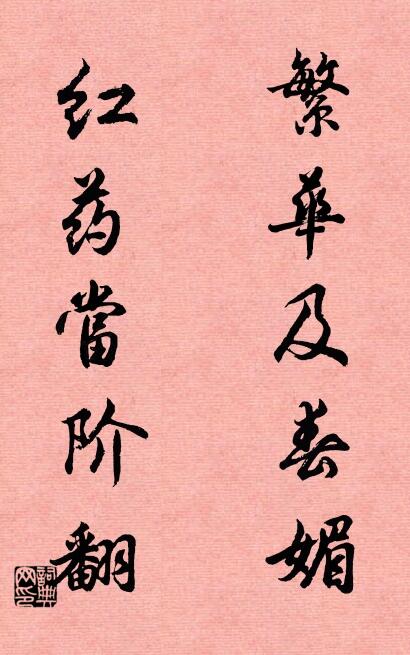 繁華及春媚
红药當阶翻
詞典网印